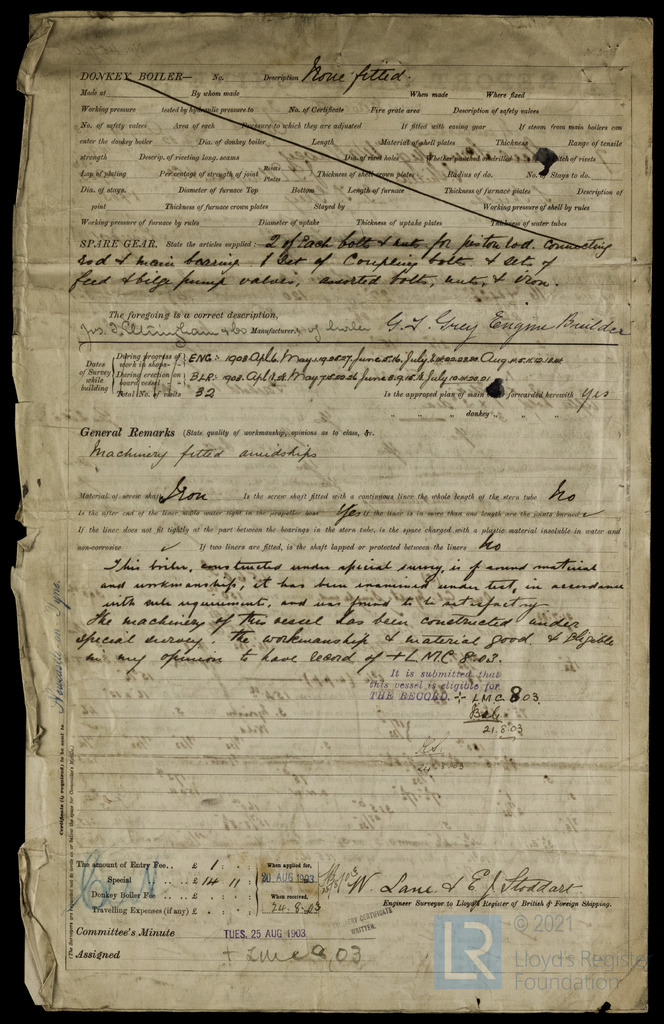 DONKEY BOILER— No. Description None fitted.
Made at By whom made When made Where fixed
Working pressure tested by hydraulic pressure to No. of Certificate Fire grate area Description of safety valves
No. of safety valves Area of each Pressure to which they are adjusted If fitted with easing gear If steam from main boilers can
enter the donkey boiler Dia. of donkey boiler Length Material of shell plates Thickness Range of tensile
strength Descrip. of riveting long. seams Dia. of rivet holes Whether punched or drilled Pitch of rivets
Lap of plating Per centage of strength of joint Rivets Plates Thickness of shell crown plates Radius of do. No. Stays to do.
Dia. of stays. Diameter of furnace Top Bottom Length of furnace Thickness of furnace plates Description of
joint Thickness of furnace crown plates Stayed by Working pressure of shell by rules
Working pressure of furnace by rules Diameter of uptake Thickness of uptake plates Thickness of water tubes
SPARE GEAR. State the articles supplied: 2 of each bolt & nut for piston rod. Connecting
rod & main bearing 1 set of coupling bolts & set of
feed & bilge pump valves, assorted bolts, nuts, & iron.
The foregoing is a correct description,
Manufacturer. of boiler G. T. Grey Engine Builder
Dates of Survey while building
During progress of work in shops--
During erection on board vessel---
Total No. of visits 32
Is the approved plan of main boiler forwarded herewith Yes
" " " donkey " " "
General Remarks (State quality of workmanship, opinions as to class, &c.
Machinery fitted amidships
Material of screw shaft Iron Is the screw shaft fitted with a continuous liner the whole length of the stern tube No
Is the after end of the liner made water tight in the propeller boss Yes If the liner is in more than one length are the joints burned
If the liner does not fit tightly at the part between the bearings in the stern tube, is the space charged with a plastic material insoluble in water and
non-corrosive If two liners are fitted, is the shaft lapped or protected between the liners No
This boiler, constructed under special survey, is of sound material
and workmanship, it has been examined under test, in accordance
with rule requirements, and was found to be satisfactory
The machinery of this vessel has been constructed under
special survey. the workmanship & material good & eligible
in my opinion to have record of + L M C 8.03.
It is submitted that
this vessel is eligible for
THE RECORD. + LMC 8 03.
21.8.03
Certificate (if required) to be sent to Newcastle on Tyne.
The amount of Entry Fee.. £ 1 : :
Special .. .. £ 14 : 11 :
Donkey Boiler Fee .. £ : :
Travelling Expenses (if any) £ : :
When applied for,
20 AUG 1903
When received,
24.8.03
W. Lane & E. J. Stoddart
Engineer Surveyor to Lloyd's Register of British & Foreign Shipping.
CERTIFICATE
WRITTEN.
Committee's Minute TUES. 25 AUG 1903
Assigned + LMC 8 03
LR
© 2021
Lloyd's Register
Foundation